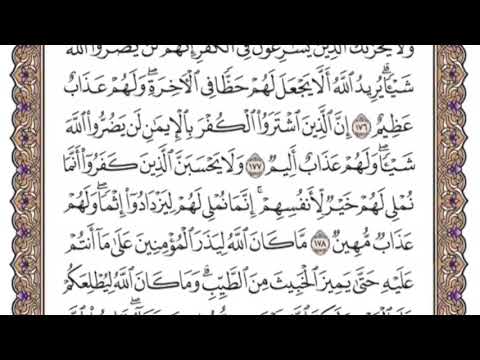 ولا يحزنك الذين يسرعون في الكفر إنهم لن يضروا الله
شَيْـًٔا ۗ يُرِيدُ ٱللَّهُ أَلَّا يَجْعَلَ لَهُمْ حَظًّا فِى ٱلْـَٔاخِرَةِ ۖ وَلَهُمْ عَذَابٌ
عَظِيمٌ ١٧٦ إِنَّ ٱلَّذِينَ ٱشْتَرَوُا۟ ٱلْكُفْرَ بِٱلْإِيمَـٰنِ لَن يَضُرُّوا۟ ٱللَّهَ
شَيْـًٔا ۖ وَلَهُمْ عَذَابٌ أَلِيمٌ ١٧٧ وَلَا يَحْسَبَنَّ ٱلَّذِينَ كَفَرُوٓا۟ أَنَّمَا
نُمْلِى لَهُمْ خَيْرٌ لِّأَنفُسِهِمْ ۚ إِنَّمَا نُمْلِى لَهُمْ لِيَزْدَادُوٓا۟ إِثْمًا ۚ وَلَهُمْ
عَذَابٌ مُّهِينٌ ١٧٨ مَّا كَانَ ٱللَّهُ لِيَذَرَ ٱلْمُؤْمِنِينَ عَلَىٰ مَآ أَنتُمْ
عَلَيْهِ حَتَّىٰ يَمِيزَ ٱلْخَبِيثَ مِنَ ٱلطَّيِّبِ ۗ وَمَا كَانَ ٱللَّهُ لِيُطْلِعَكُمْ